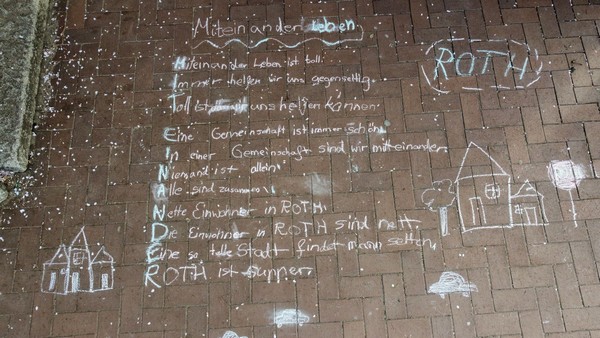 Miteinander Leben
ROTH
Miteinander Leben ist toll!
Immer helfen wir uns gegenseitig.
Toll ist uns helfen können.
Eine Gemeinschaft ist immer schön.
In einer Gemeinschaft sind wir miteinander.
Niemand ist allein
Alle sind zusammen
Nette Einwohner in ROTH!
Die Einwohner in ROTH sind nett.
Eine so tolle Stadt findet mann selten.
ROTH ist supper.